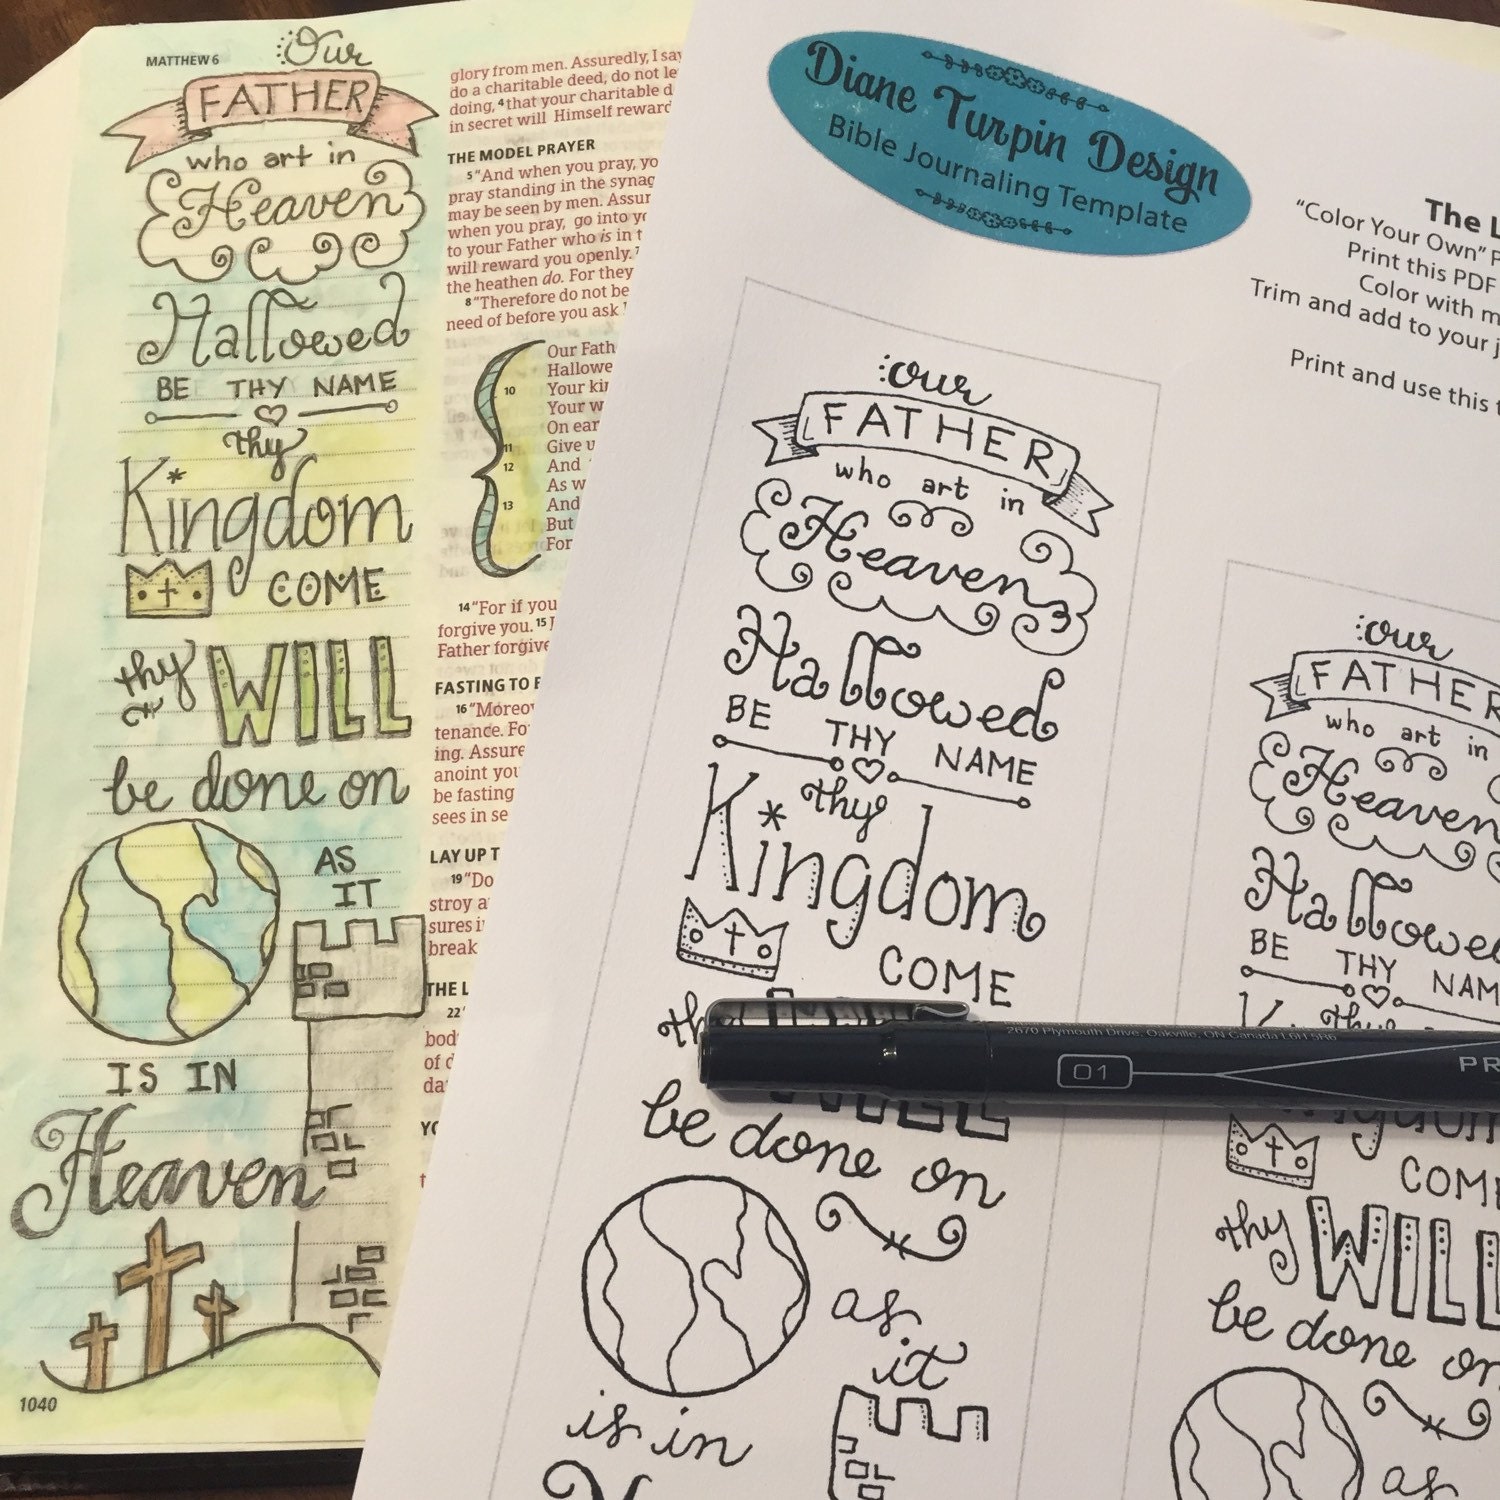 MATTHEW 6
Our
FATHER
who art in
Heaven
Hallowed
BE THY NAME
thy
Kingdom
COME
thy WILL
be done on
AS
IT
IS IN
Heaven
1040
glory from men. Assuredly, I say
do a charitable deed, do not le
doing, 4 that your charitable d
in secret will Himself reward
THE MODEL PRAYER
5 "And when you pray, yo
pray standing in the synag
may be seen by men. Assur
when you pray, go into yo
to your Father who is in t
will reward you openly. 7
the heathen do. For they
8 "Therefore do not be
need of before you ask
Our Fath
Hallowe
10 Your kin
Your w
On ear
11 Give u
12 And
As w
13 And
But
For
14 "For if you
forgive you. 15
Father forgive
FASTING TO
16 "Moreov
tenance. Fo
ing. Assure
anoint you
be fasting
sees in se
LAY UP T
19 "Do
stroy a
sures i
break
THE L
22
bod
of d
da
YO
Diane Turpin Design
Bible Journaling Template
The L
"Color Your Own" P
Print this PDF
Color with m
Trim and add to your j
Print and use this t
our
FATHER
who art in
Heaven
Hallowed
BE THY NAME
thy
Kingdom
COME
thy WILL
be done on
as
it
is in
our
FATHER
who art in
Heaven
Hallowed
BE THY NAM
thy
Kingdom
COME
thy WILL
be done on
as
2670 Plymouth Drive, Oakville, ON Canada L6H 5R6
01
PR